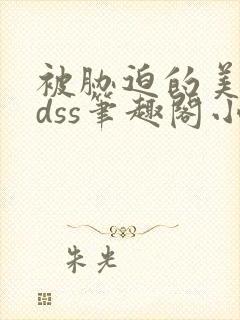 被胁迫的美
dss笔趣阁小
朱光